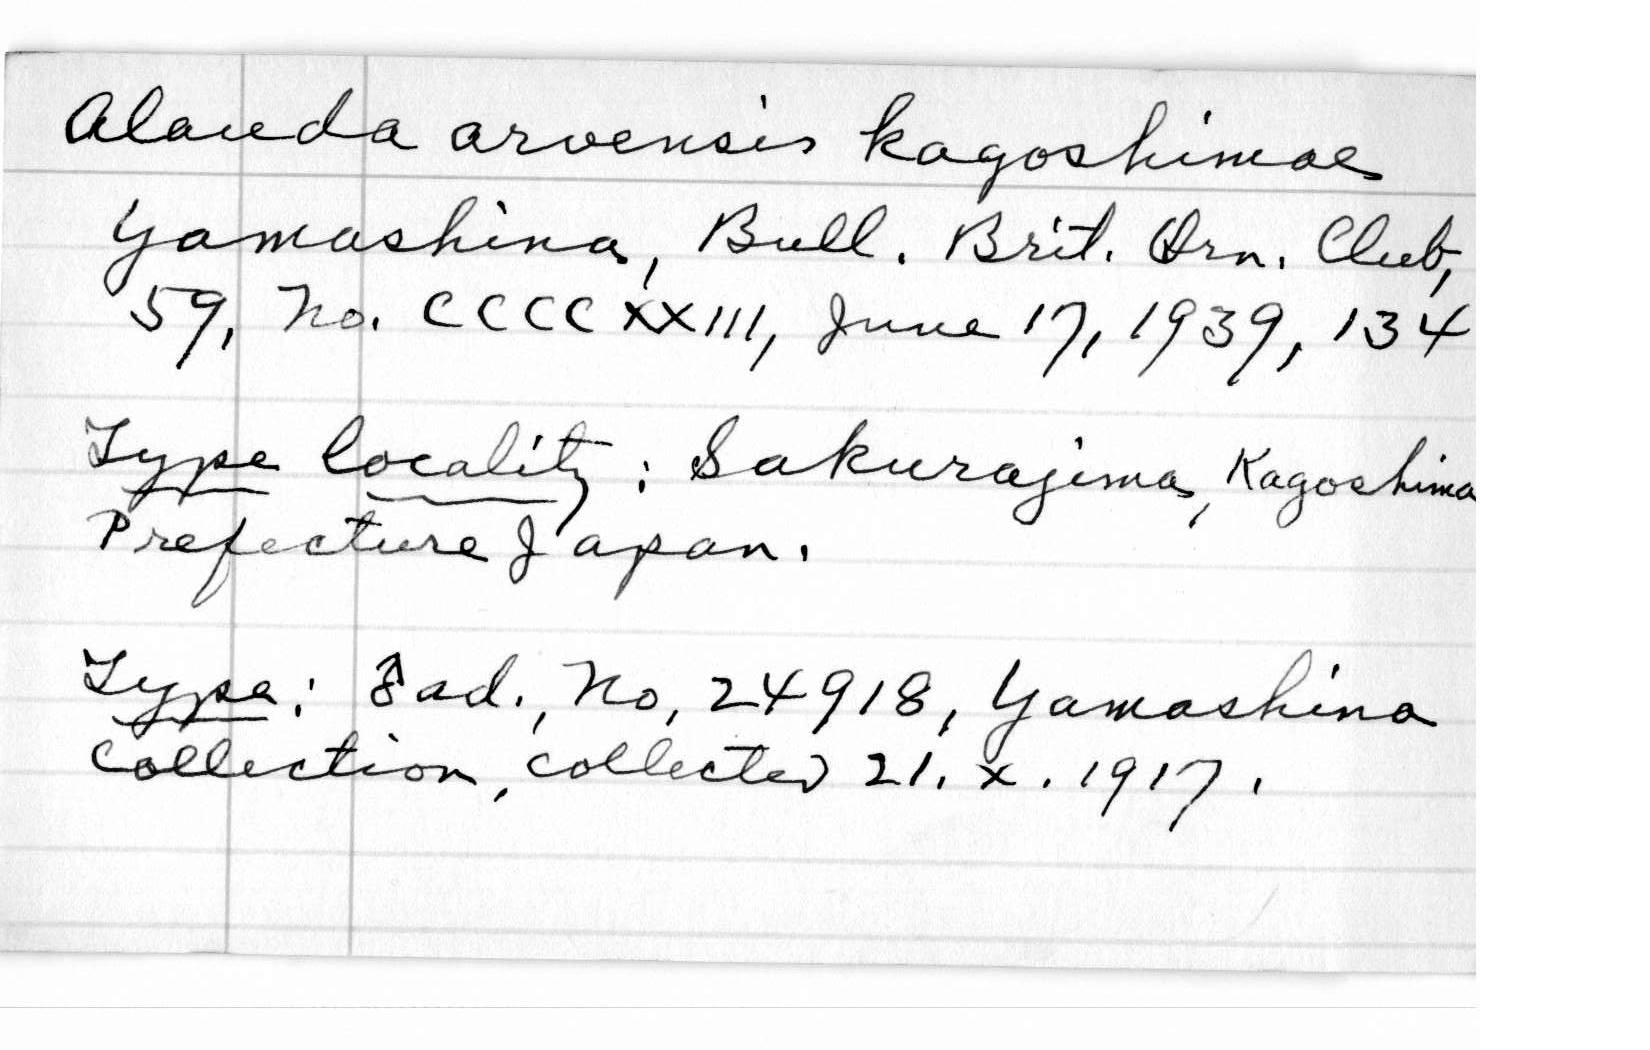 Alauda arvensis kagoshimae
Yamashina, Bull. Brit. Orn. Club,
59, No. CCCCXXIII, June 17, 1939, 134
Type locality: Sakurajima, Kagoshima
Prefecture Japan.
Type: ♂ ad., No. 24918, Yamashina
Collection, collected 21. x. 1917.